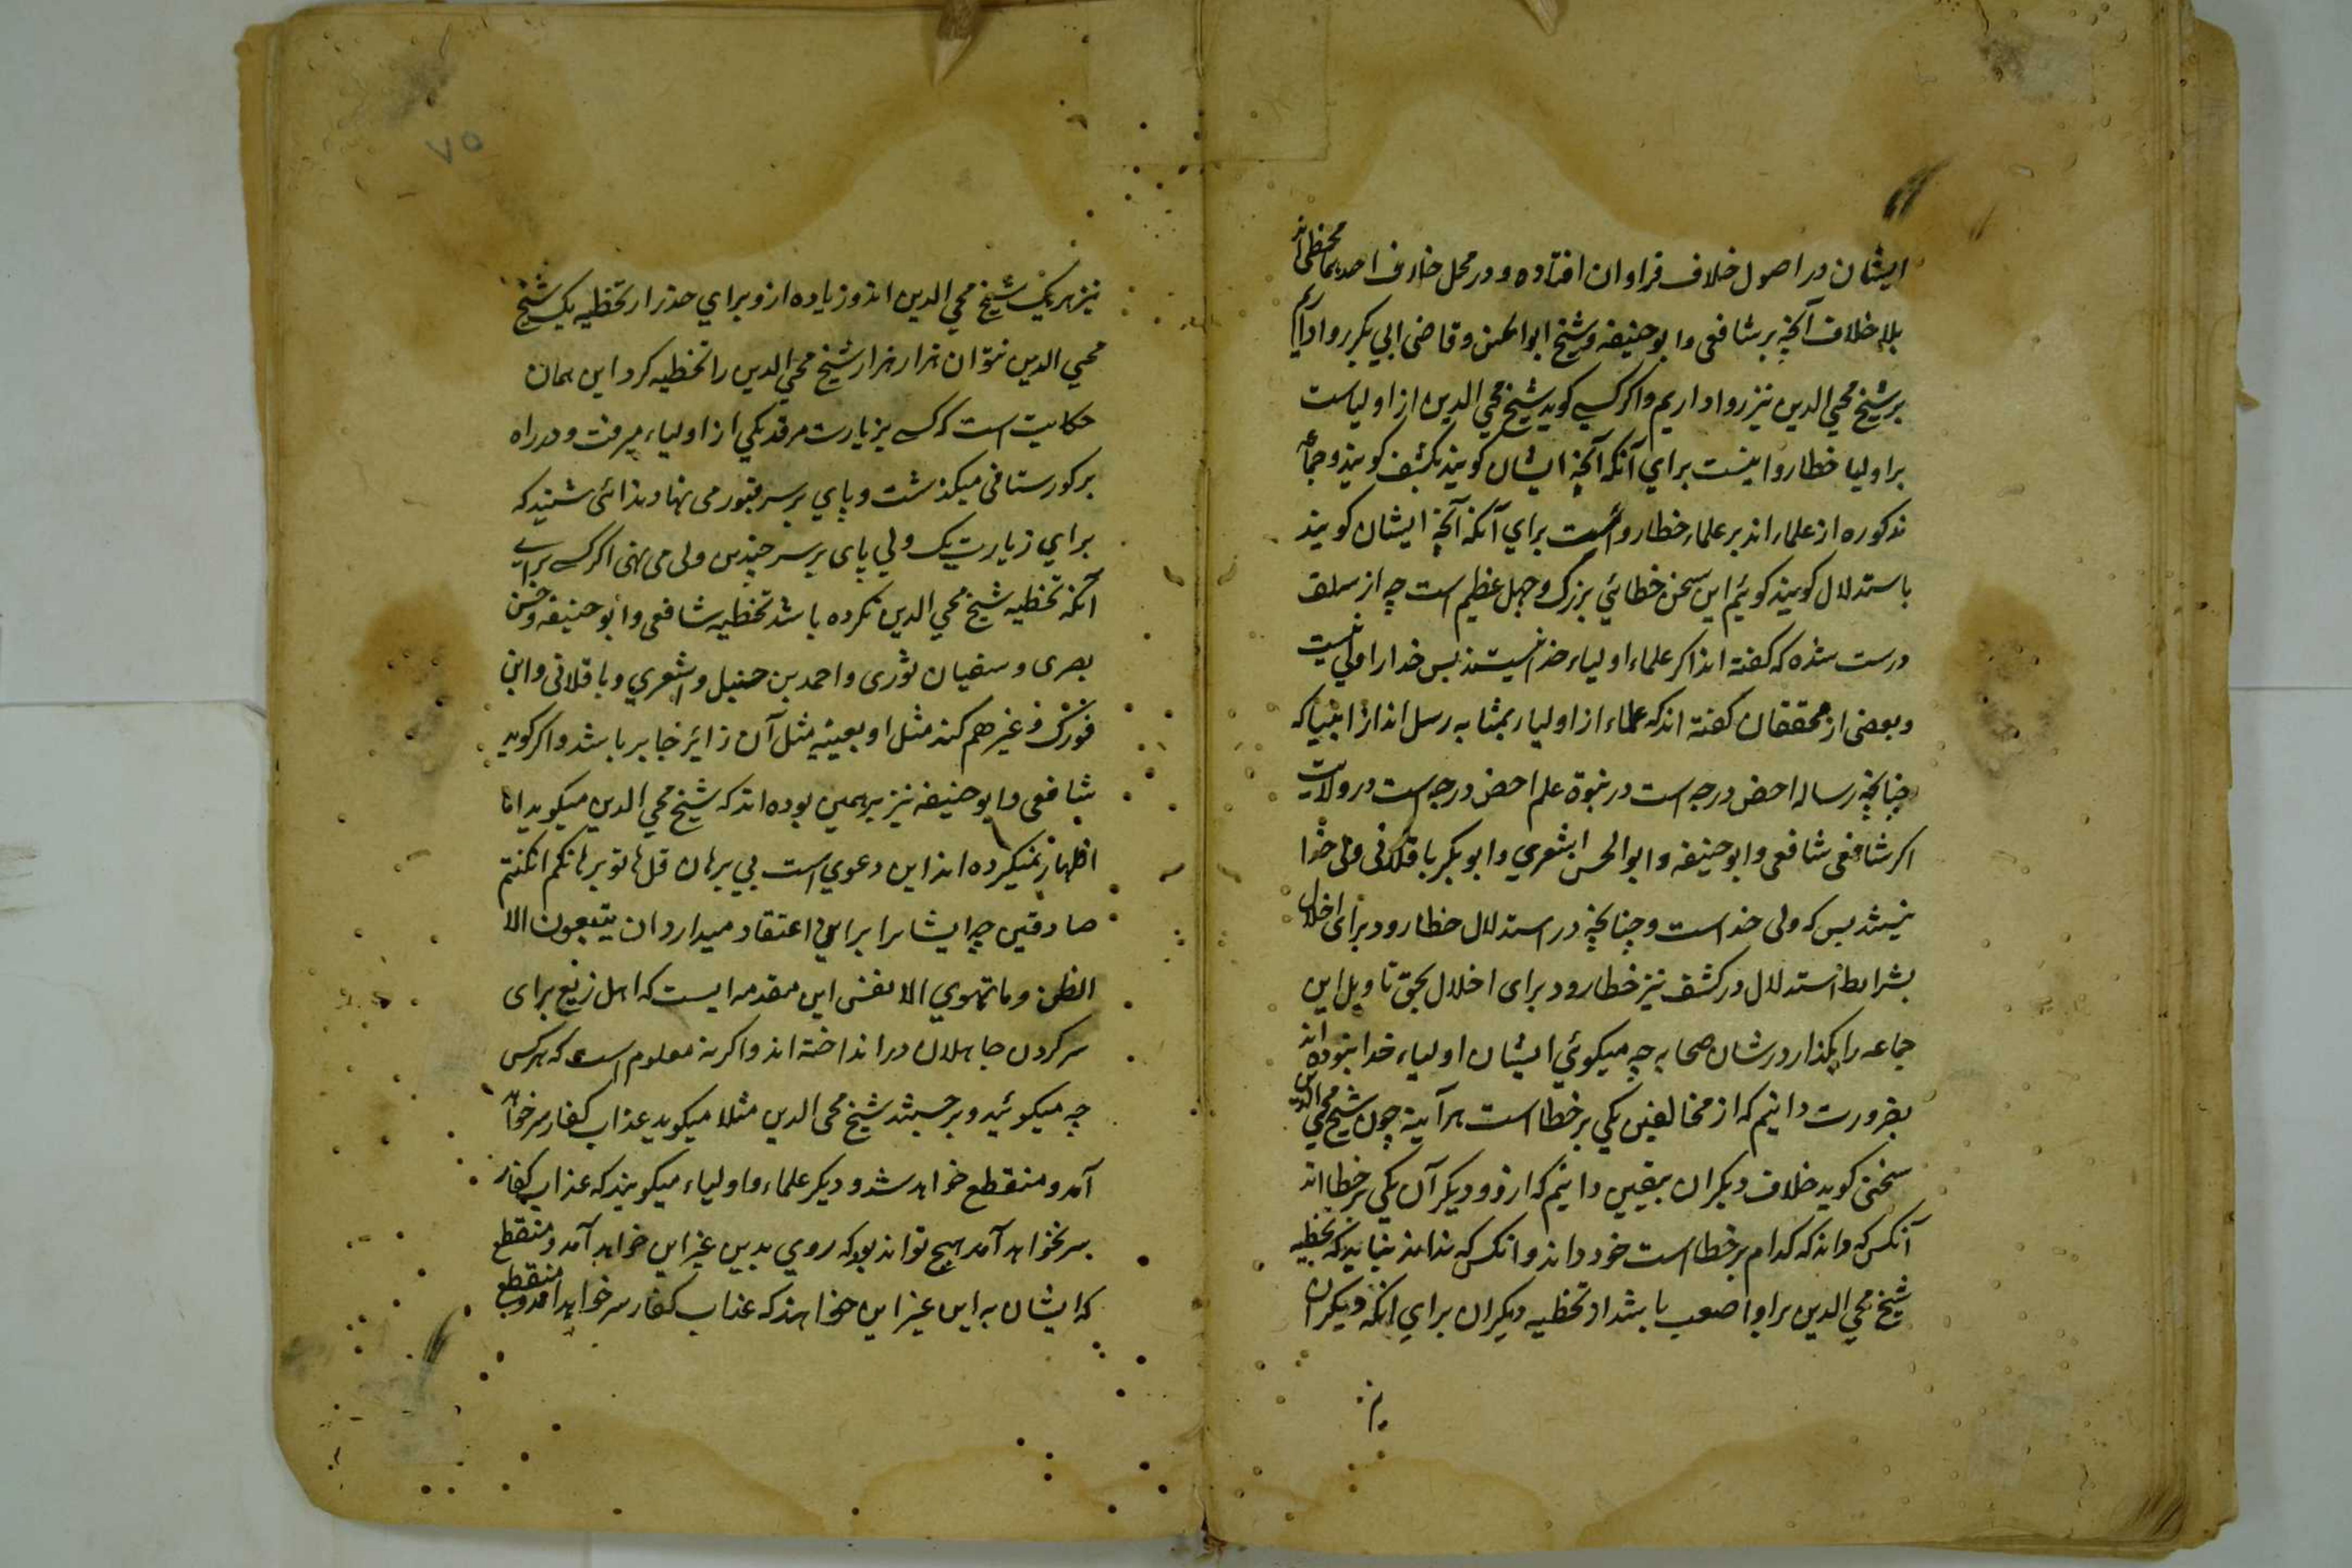 ایشان در اصول خلاف فراوان افتاده و در محل خلاف احدیهما مخطی اند
بلا خلاف آنچه بر شافعی و ابو حنیفه و شیخ ابو الحسن و قاضی ابی بکر روا داریم
بر شیخ محیی الدین نیز روا داریم و اکر کسی کوید شیخ محیی الدین از اولیاست
بر اولیا خطا روا نیست برای آنکه آنچه ایشان کویند بکشف کویند و جماعه
مذکوره از علماء اند بر علماء خطا رواست برای آنکه آنچه ایشان کویند
باستدلال کویند کوئیم این سخن خطائی بزرک و جهل عظیم است چه از سلف
درست شده که کفته اند اکر علماء اولیاء خدا نیستند پس خدا را ولی نیست
و بعضی از محققان کفته اند که علماء از اولیاء بمثابه رسل اند از انبیا که
چنانچه رساله اخص درجه است در نبوة علم اخص درجه است در ولایت
اکر شافعی شافعی و ابو حنیفه و ابو الحسن اشعری و ابو بکر باقلانی ولی خدا
نیستند پس که ولی خداست و چنانچه در استدلال خطا رود برای اخلال
بشرایط استدلال در کشف نیز خطا رود برای اخلال بحق تاویل این
جماعه را بکذار در شان صحابه چه میکوئی ایشان اولیاء خدا نبوده اند
بضرورت دانیم که از مخالفین یکی بر خطا است هر آینه چون شیخ محیی الدین
سخنی کوید خلاف دیکران بیقین دانیم که ازو و دیکر آن یکی بر خطا اند
آنکس که داند که کدام بر خطا است خود داند و انکس که نداند نباید که تخطیه
شیخ محیی الدین بر او اصعب باشد از تخطیه دیکران برای انکه دیکران
نیز
۷۵
نیز هر یک شیخ محیی الدین اند و زیاده ازو برای حذر از تخطیه یک شیخ
محیی الدین نتوان هزار هزار شیخ محیی الدین را تخطیه کرد این همان
حکایت است که کسی بزیارت مرقد یکی از اولیاء میرفت و در راه
بر کورستانی میکذشت و پای بر سر قبور می نهاد ندائی شنید که
برای زیارت یک ولی پای بر سر چندین ولی می نهی اکر کسی برای
آنکه تخطیه شیخ محیی الدین نکرده باشد تخطیه شافعی و ابو حنیفه و حسن
بصری و سفیان ثوری و احمد بن حنبل و اشعری و باقلانی و ابن
فورک و غیرهم کند مثل او بعینیه مثل آن زائر جابر باشد و اکر کوید
شافعی و ابو حنیفه نیز برهمین بوده اند که شیخ محیی الدین میکوید اما
اظهار نمیکرده اند این دعوی است بی برهان قل هاتو برهانکم انکنتم
صادقین چه ایشانرا بر این اعتقاد میدارد ان یتبعون الا
الظن و ما تهوی الانفس این مقدمه ایست که اهل زیغ برای
سر کردن جاهلان در انداخته اند و اکر نه معلوم است که هر کس
چه میکوئید و بر چیستند شیخ محی الدین مثلا میکوید عذاب کفار سر خواهد
آمد و منقطع خواهد شد و دیکر علماء و اولیاء میکویند که عذاب کفار
سر نخواهد آمد هیچ تواند بود که روی بدین غیر این خواهد آمد و منقطع
که ایشان به این غیر این خواهند که عذاب کفار سر خواهد آمد و منقطع